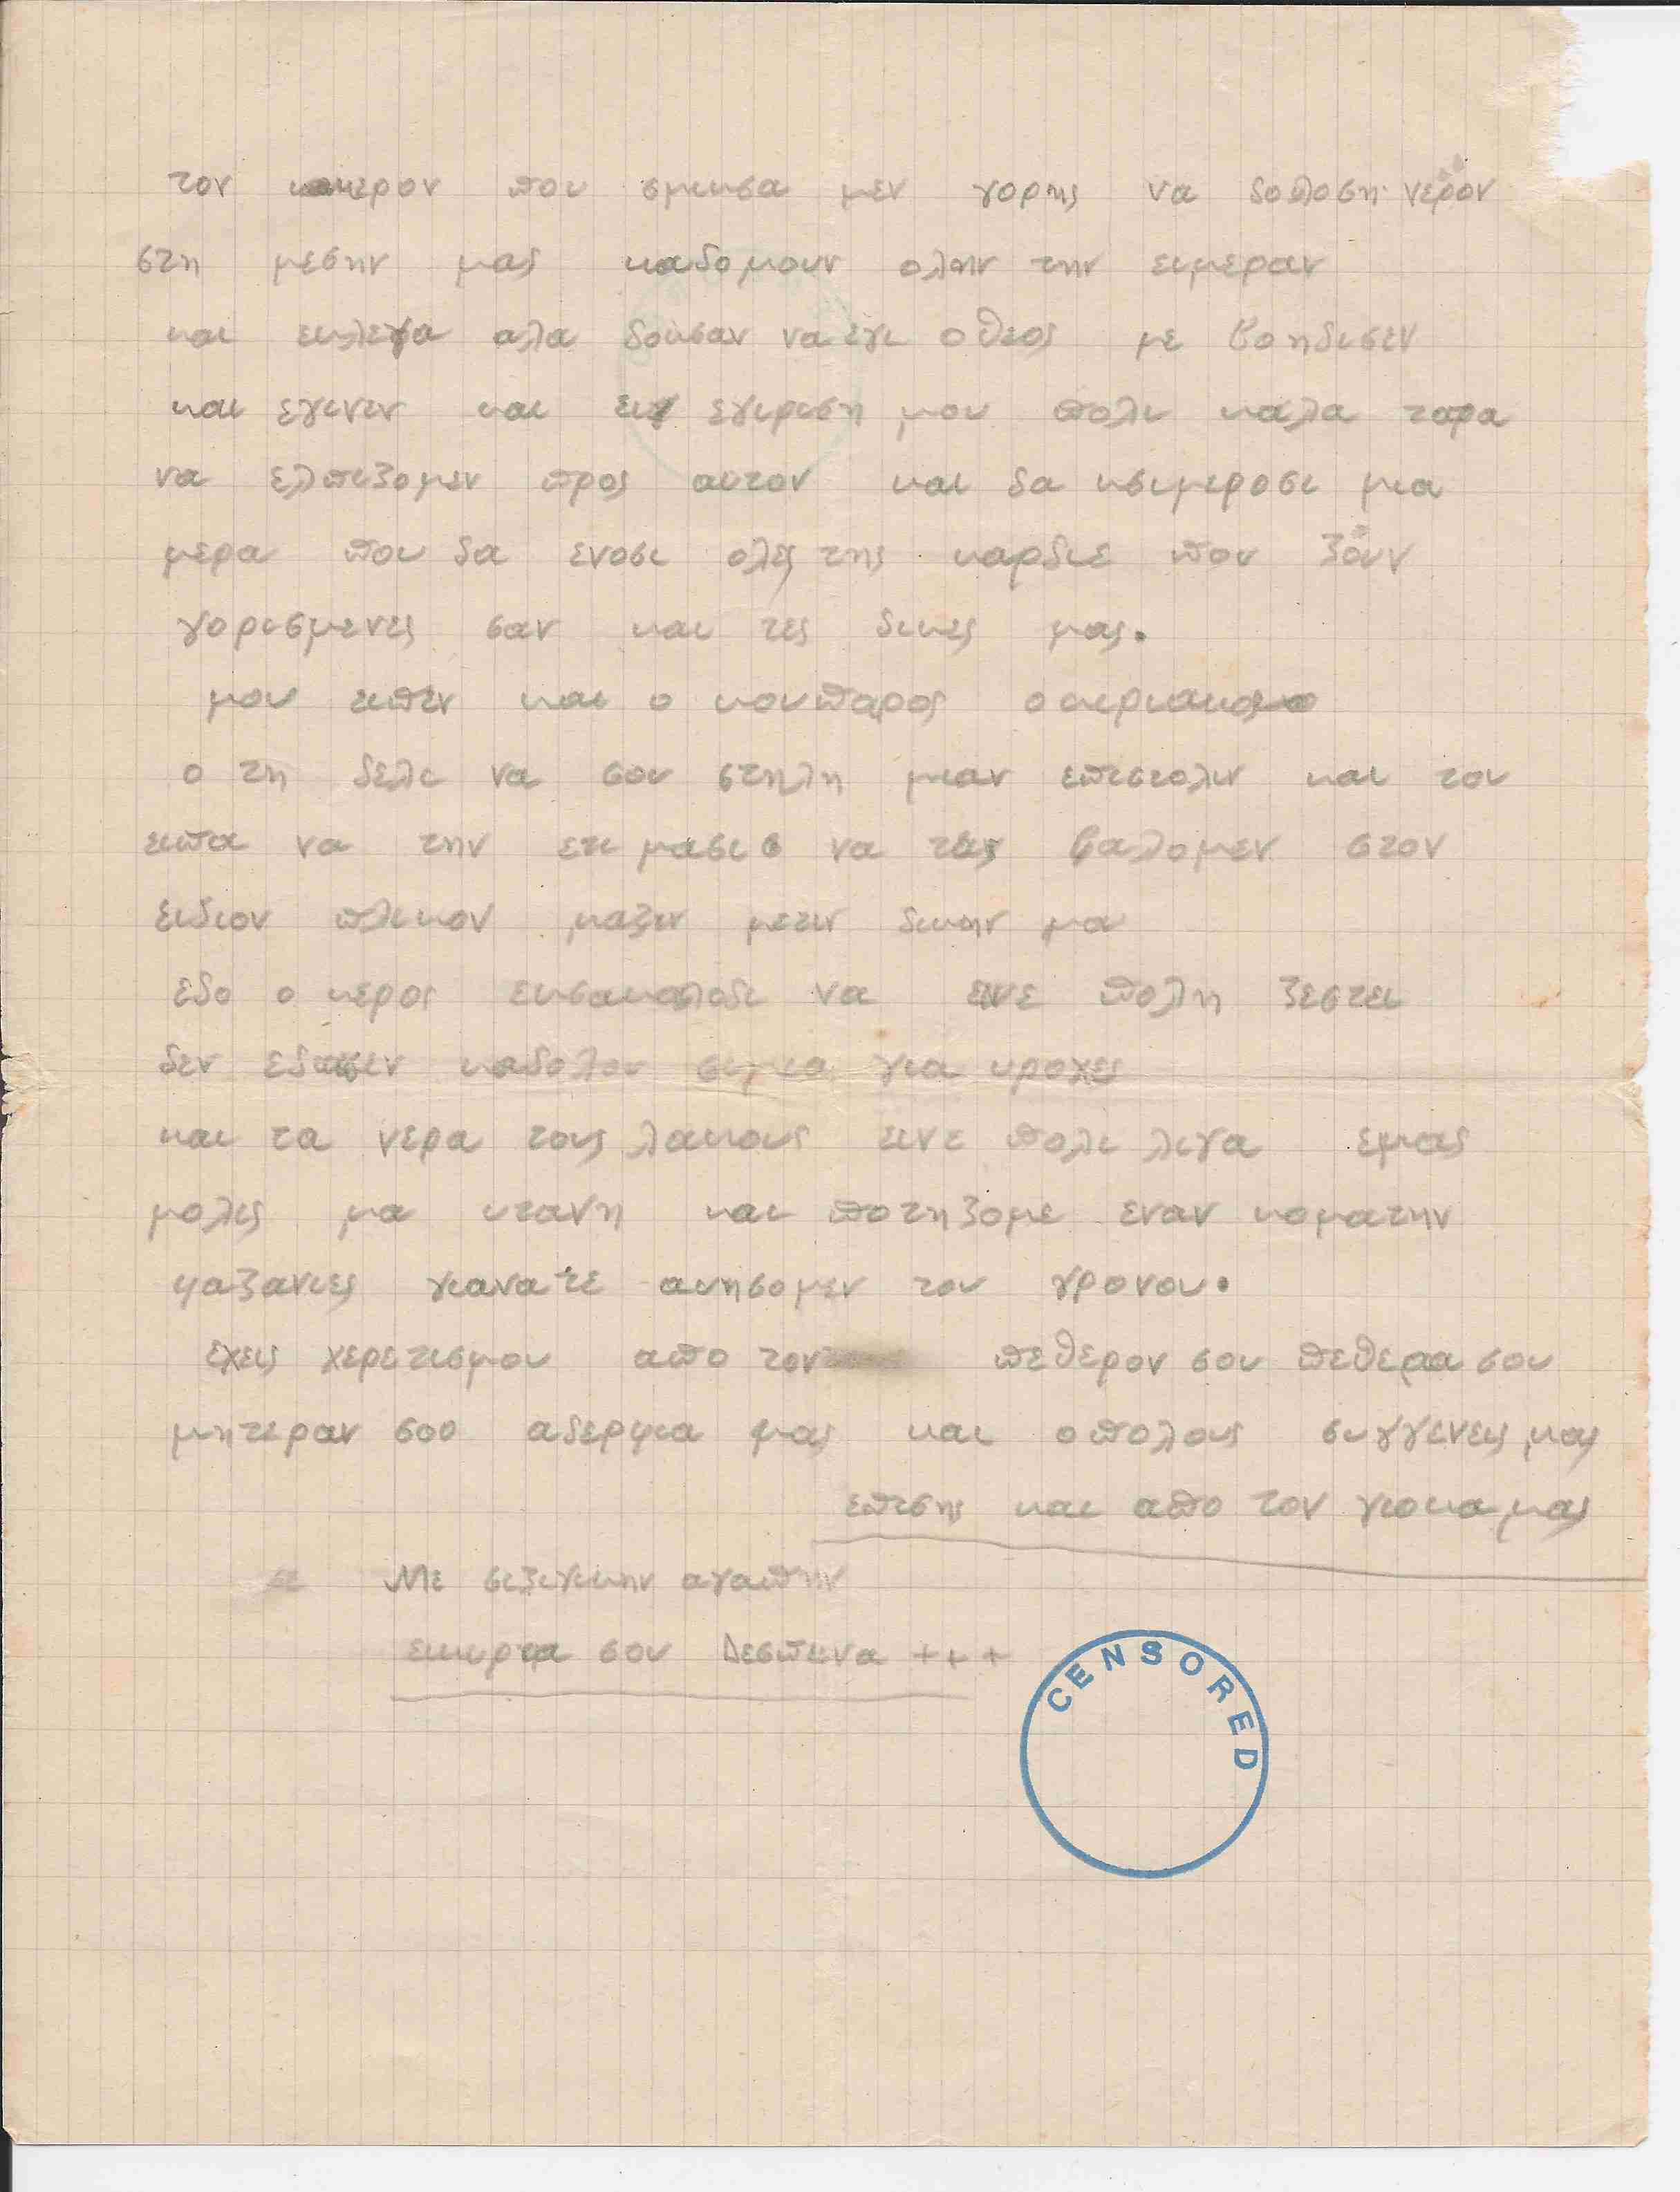 τον κερον που σμικσα μεν γορης να δοθλοση νερον
στη μεσην μας καδομουν ολην την ειμεραν
και εικλεγα αλα δοκσαν να εγι ο θεος με βοηδισεν
και εγινεν και ει εγιρισι μου πολι καλα ταρα
να ελπιζομεν προς αυτον και δα κσιμεροσι μια
μερα που δα ενοσι ολες της καρδιε που ζουν
γορισμενες σαν και τες δικες μας.
μου ειπεν και ο κουπαρος ο κιριακος
ο τη δελι να σου στηλη μιαν επιστολιν και του
ειπα να την ετιμασι να τες βαλομεν στον
ειδιον πλικον μαζιν μετιν δικην μα
εδο ο κερος εικσακολοδι να εινε πολη ζεστει
δεν εδωσεν καδολου σιμια για κροχες
και τα νερα τους λακους εινε πολι λιγα εμας
μολις μα κτανη και ποτηζομε εναν κοματην
μαζανιες γιανατε ακησομεν του γρονου.
εχεις χερετισμου απο τον πεθερον σου πεθερα σου
μητεραν σου αδερφια μας και οπολους συγγενεις μας
επισης και απο τον γιοκα μας
Με σιζιγικην αγαπην
εικιρια σου Δεσπινα +++
CENSORED